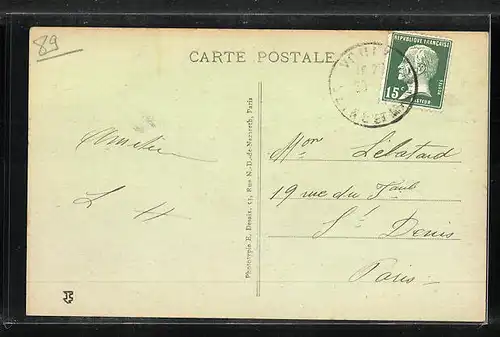 89
CARTE POSTALE
REPUBLIQUE FRANÇAISE
15c
PASTEUR
POSTES
Amitiés
L H
Mon Lebatard
19 rue du Faub
St Denis
Paris
Phototypie E. Desaix, 13, Rue N.-D.-de-Nazareth, Paris